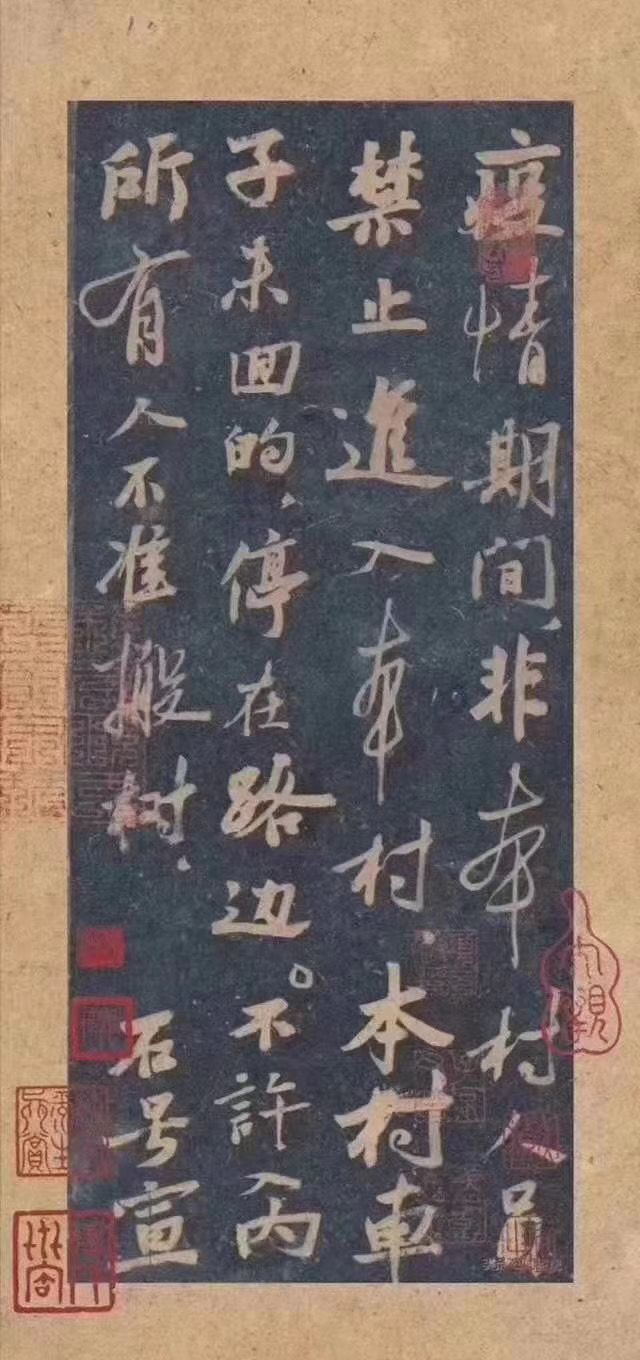 疫情期间,非本村人员
禁止進入本村.本村車
子未回的,停在路边。不許入内
所有人不准搬树.
石号宣